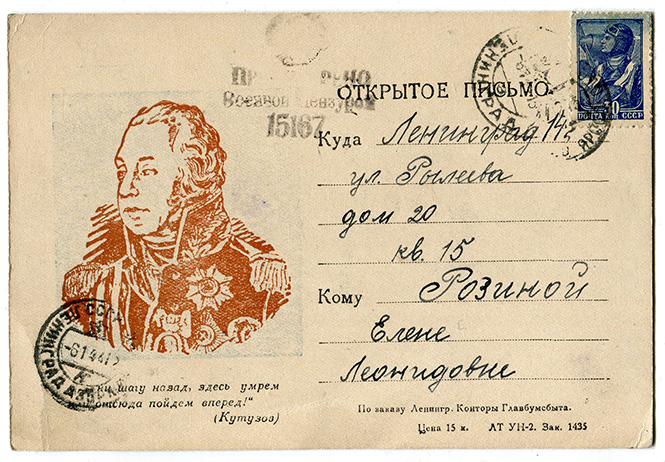 Военной Цензурой
15167
ОТКРЫТОЕ ПИСЬМО
30
ПОЧТА СССР
Куда Ленинград 14
ул. Рылеева
дом 20
кв. 15
Кому Розиной
Елене
Леонидовне
ЛЕНИНГРАД
ЛЕНИНГРАД
-6 1 44
шагу назад, здесь умрем
отсюда пойдем вперед!"
(Кутузов)
По заказу Ленингр. Конторы Главбумсбыта.
Цена 15 к. АТ УН-2. Зак. 1435